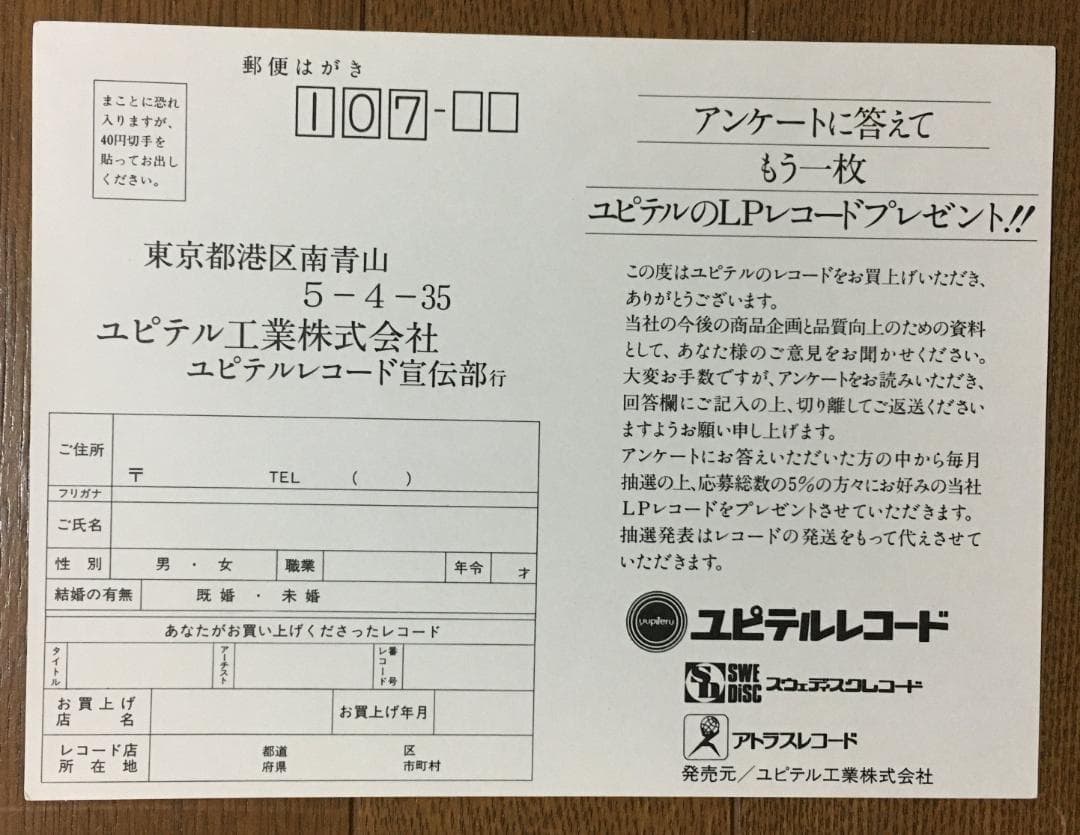 郵便はがき
107-□□
まことに恐れ
入りますが、
40円切手を
貼ってお出し
ください。
東京都港区南青山
5-4-35
ユピテル工業株式会社
ユピテルレコード宣伝部行
ご住所
〒 TEL ( )
フリガナ
ご氏名
性別 男・女 職業 年令 才
結婚の有無 既婚・未婚
あなたがお買い上げくださったレコード
タイトル アーチスト レコード番号
お買上げ店名 お買上げ年月
レコード店所在地 都道府県 区市町村
アンケートに答えて
もう一枚
ユピテルのLPレコードプレゼント!!
この度はユピテルのレコードをお買上げいただき、
ありがとうございます。
当社の今後の商品企画と品質向上のための資料
として、あなた様のご意見をお聞かせください。
大変お手数ですが、アンケートをお読みいただき、
回答欄にご記入の上、切り離してご返送ください
ますようお願い申し上げます。
アンケートにお答えいただいた方の中から毎月
抽選の上、応募総数の5%の方々にお好みの当社
LPレコードをプレゼントさせていただきます。
抽選発表はレコードの発送をもって代えさせて
いただきます。
yupiteru ユピテルレコード
SD SWE DISC スウェディスクレコード
アトラスレコード
発売元/ユピテル工業株式会社